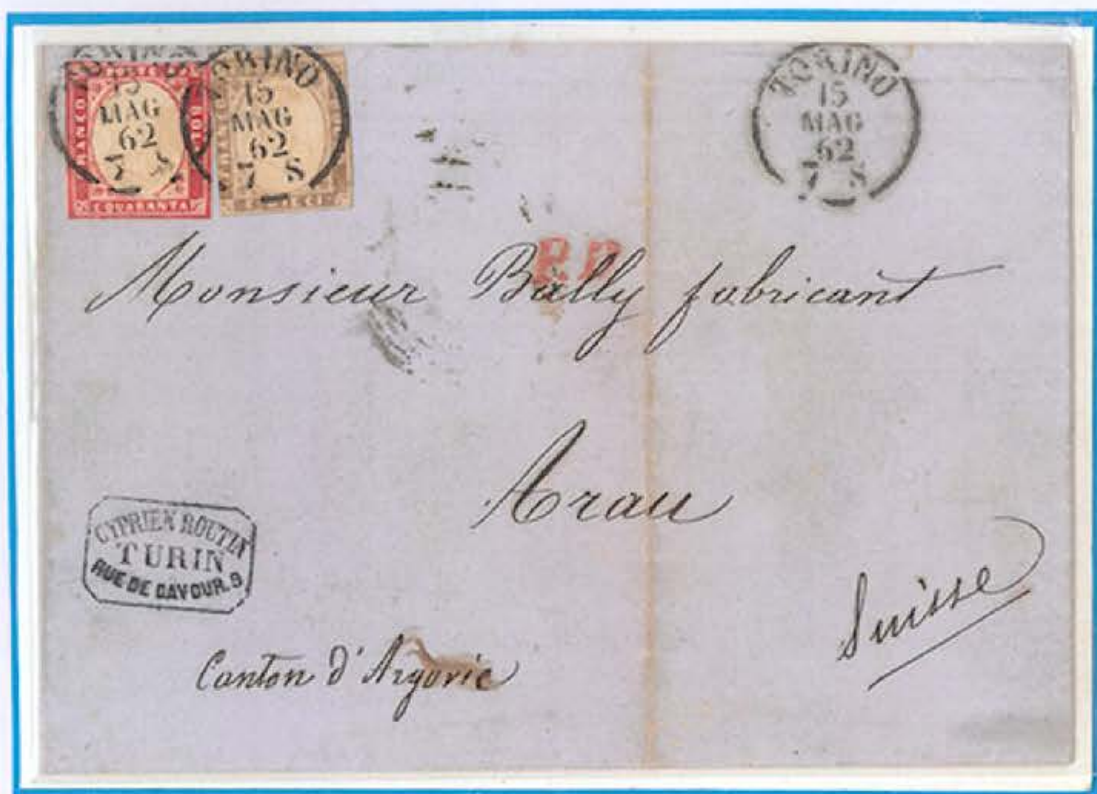 FRANCO POSTE BOLLO
C. QUARANTA
TORINO
15
MAG
62
7 S
TORINO
15
MAG
62
7 S
P.D.
Monsieur Bally fabricant
Arau
Suisse
CYPRIEN ROUTIN
TURIN
RUE DE CAVOUR. 9
Canton d'Argovie